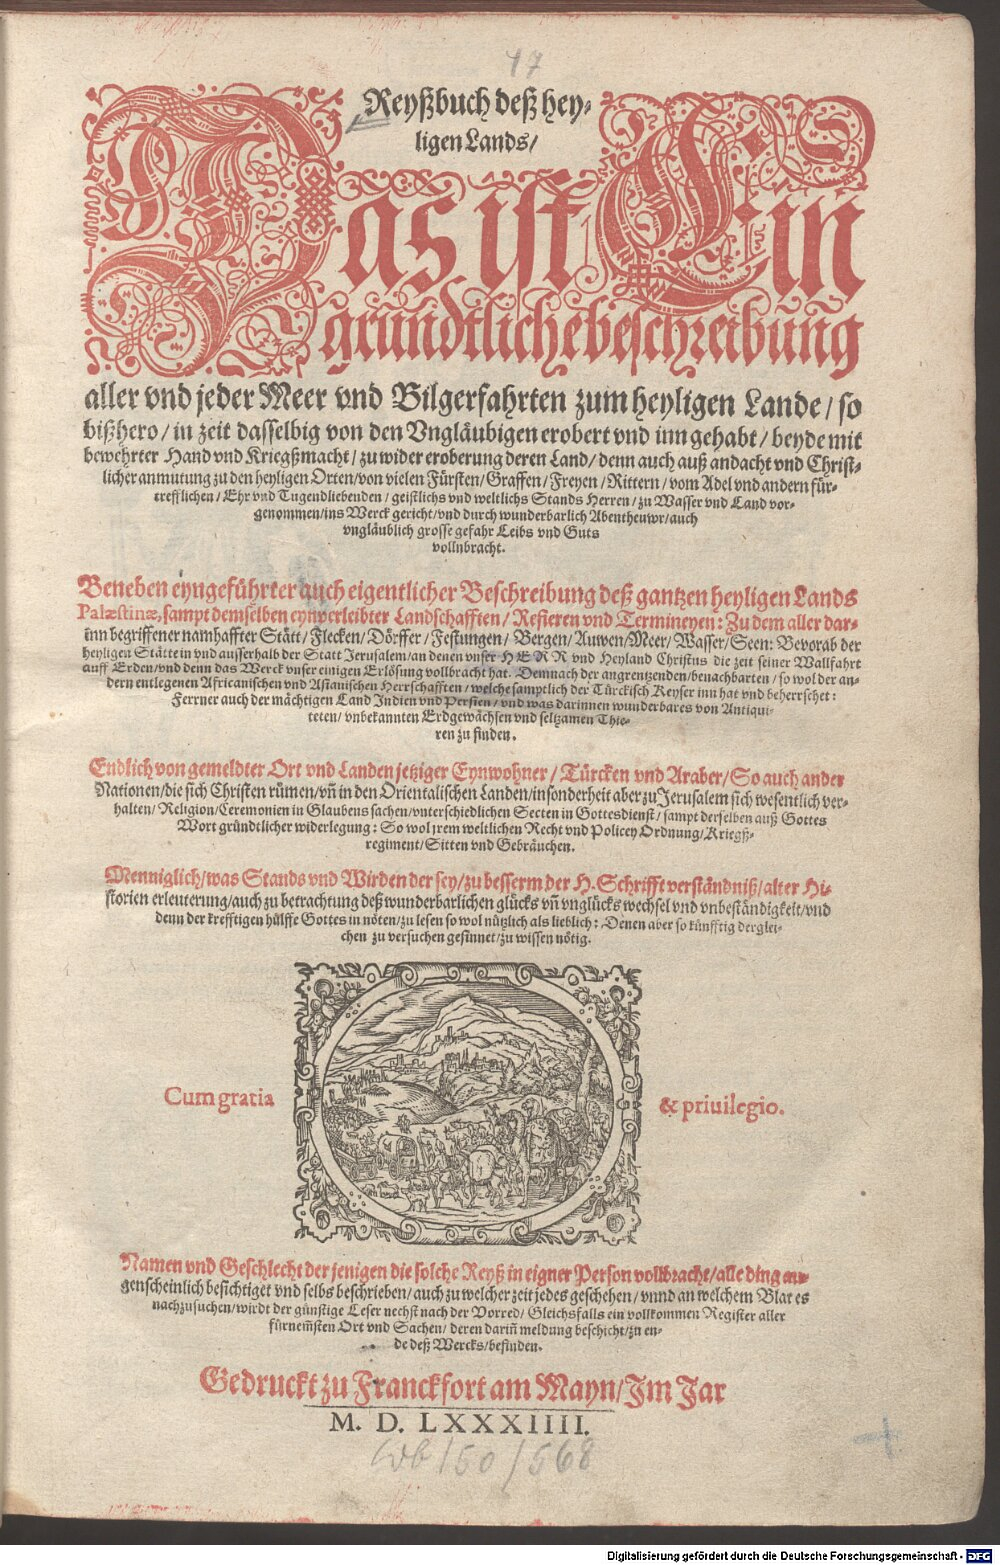 17
Reyßbuch deß hey-
ligen Lands/
Das ist Ein
gründtliche beschreibung
aller vnd jeder Meer vnd Bilgerfahrten zum heyligen Lande/ so
bißhero/ in zeit dasselbig von den Vngläubigen erobert vnd inn gehabt/ beyde mit
bewehrter Hand vnd Kriegßmacht/ zu wider eroberung deren Land/ denn auch auß andacht vnd Christ-
licher anmutung zu den heyligen Orten/ von vielen Fürsten/ Graffen/ Freyen/ Rittern/ vom Adel vnd andern für-
trefflichen/ Ehr vnd Tugendliebenden/ geistlichs vnd weltlichs Stands Herren/ zu Wasser vnd Land vor-
genommen/ ins Werck gericht/ vnd durch wunderbarlich Abentheuwr/ auch
vngläublich grosse gefahr Leibs vnd Guts
vollnbracht.
Beneben eyngeführter auch eigentlicher Beschreibung deß gantzen heyligen Lands
Palæstinæ, sampt demselben eynverleibter Landschafften/ Refieren vnd Termineyen: Zu dem aller dar-
inn begriffener namhaffter Stätt/ Flecken/ Dörffer/ Festungen/ Bergen/ Auwen/ Meer/ Wasser/ Seen: Bevorab der
heyligen Stätte in vnd ausserhalb der Statt Jerusalem/ an denen vnser HERR vnd Heyland Christus die zeit seiner Wallfahrt
auff Erden/ vnd denn das Werck vnser einigen Erlösung vollbracht hat. Demnach der angrentzenden/ benachbarten/ so wol der an-
dern entlegenen Africanischen vnd Asianischen Herrschafften/ welche samptlich der Türckisch Keyser inn hat vnd beherrschet:
Ferrner auch der mächtigen Land Indien vnd Persien/ vnd was darinnen wunderbares von Antiqui-
teten/ vnbekannten Erdgewächsen vnd seltzamen Thie-
ren zu finden.
Endlich von gemeldter Ort vnd Landen jetziger Eynwohner/ Türcken vnd Araber/ So auch ander
Nationen/ die sich Christen rümen/ vñ in den Orientalischen Landen/ insonderheit aber zu Jerusalem sich wesentlich ver-
halten/ Religion/ Ceremonien in Glaubens sachen/ vnterschiedlichen Secten in Gottesdienst/ sampt derselben auß Gottes
Wort gründtlicher widerlegung: So wol jrem weltlichen Recht vnd Policey Ordnung/ Kriegß-
regiment/ Sitten vnd Gebräuchen.
Menniglich/ was Stands vnd Wirden der sey/ zu besserm der H. Schrifft verständniß/ alter Hi-
storien erleuterung/ auch zu betrachtung deß wunderbarlichen glücks vñ vnglücks wechsel vnd vnbeständigkeit/ vnd
denn der krefftigen hülffe Gottes in nöten/ zu lesen so wol nützlich als lieblich: Denen aber so künfftig derglei-
chen zu versuchen gesinnet/ zu wissen nötig.
Cum gratia & priuilegio.
Namen vnd Geschlecht der jenigen die solche Reyß in eigner Person vollbracht/ alle ding au-
genscheinlich besichtiget vnd selbs beschrieben/ auch zu welcher zeit jedes geschehen/ vnnd an welchem Blat es
nachzusuchen/ wirdt der günstige Leser nechst nach der Vorred/ Gleichsfalls ein vollkommen Register aller
fürnem̃sten Ort vnd Sachen/ deren dariñ meldung beschicht/ zu en-
de deß Wercks/ befinden.
Gedruckt zu Franckfort am Mayn/ Im Jar
M. D. LXXXIIII.
150/568
Digitalisierung gefördert durch die Deutsche Forschungsgemeinschaft - DFG